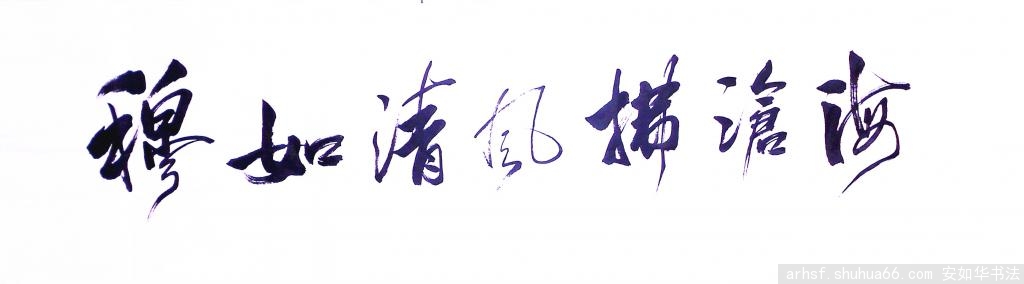 穆如清风拂滄海
arhsf.shuhua66.com 安如华书法